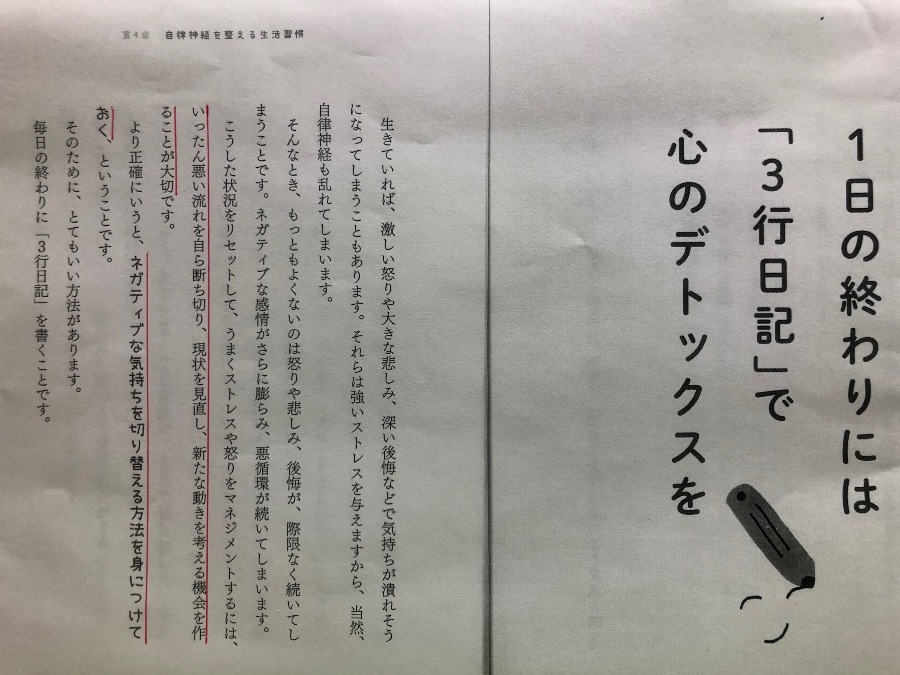 1日の終わりには
「3行日記」で
心のデトックスを
第4章 自律神経を整える生活習慣
生きていれば、激しい怒りや大きな悲しみ、深い後悔などで気持ちが潰れそう
になってしまうこともあります。それらは強いストレスを与えますから、当然、
自律神経も乱れてしまいます。
そんなとき、もっともよくないのは怒りや悲しみ、後悔が、際限なく続いてし
まうことです。ネガティブな感情がさらに膨らみ、悪循環が続いてしまいます。
こうした状況をリセットして、うまくストレスや怒りをマネジメントするには、
いったん悪い流れを自ら断ち切り、現状を見直し、新たな動きを考える機会を作
ることが大切です。
より正確にいうと、ネガティブな気持ちを切り替える方法を身につけて
おく、ということです。
そのために、とてもいい方法があります。
毎日の終わりに「3行日記」を書くことです。